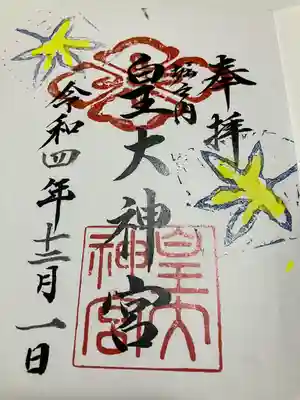 奉拝
松之内
皇大神宮
令和四年十二月一日
皇大
神宮